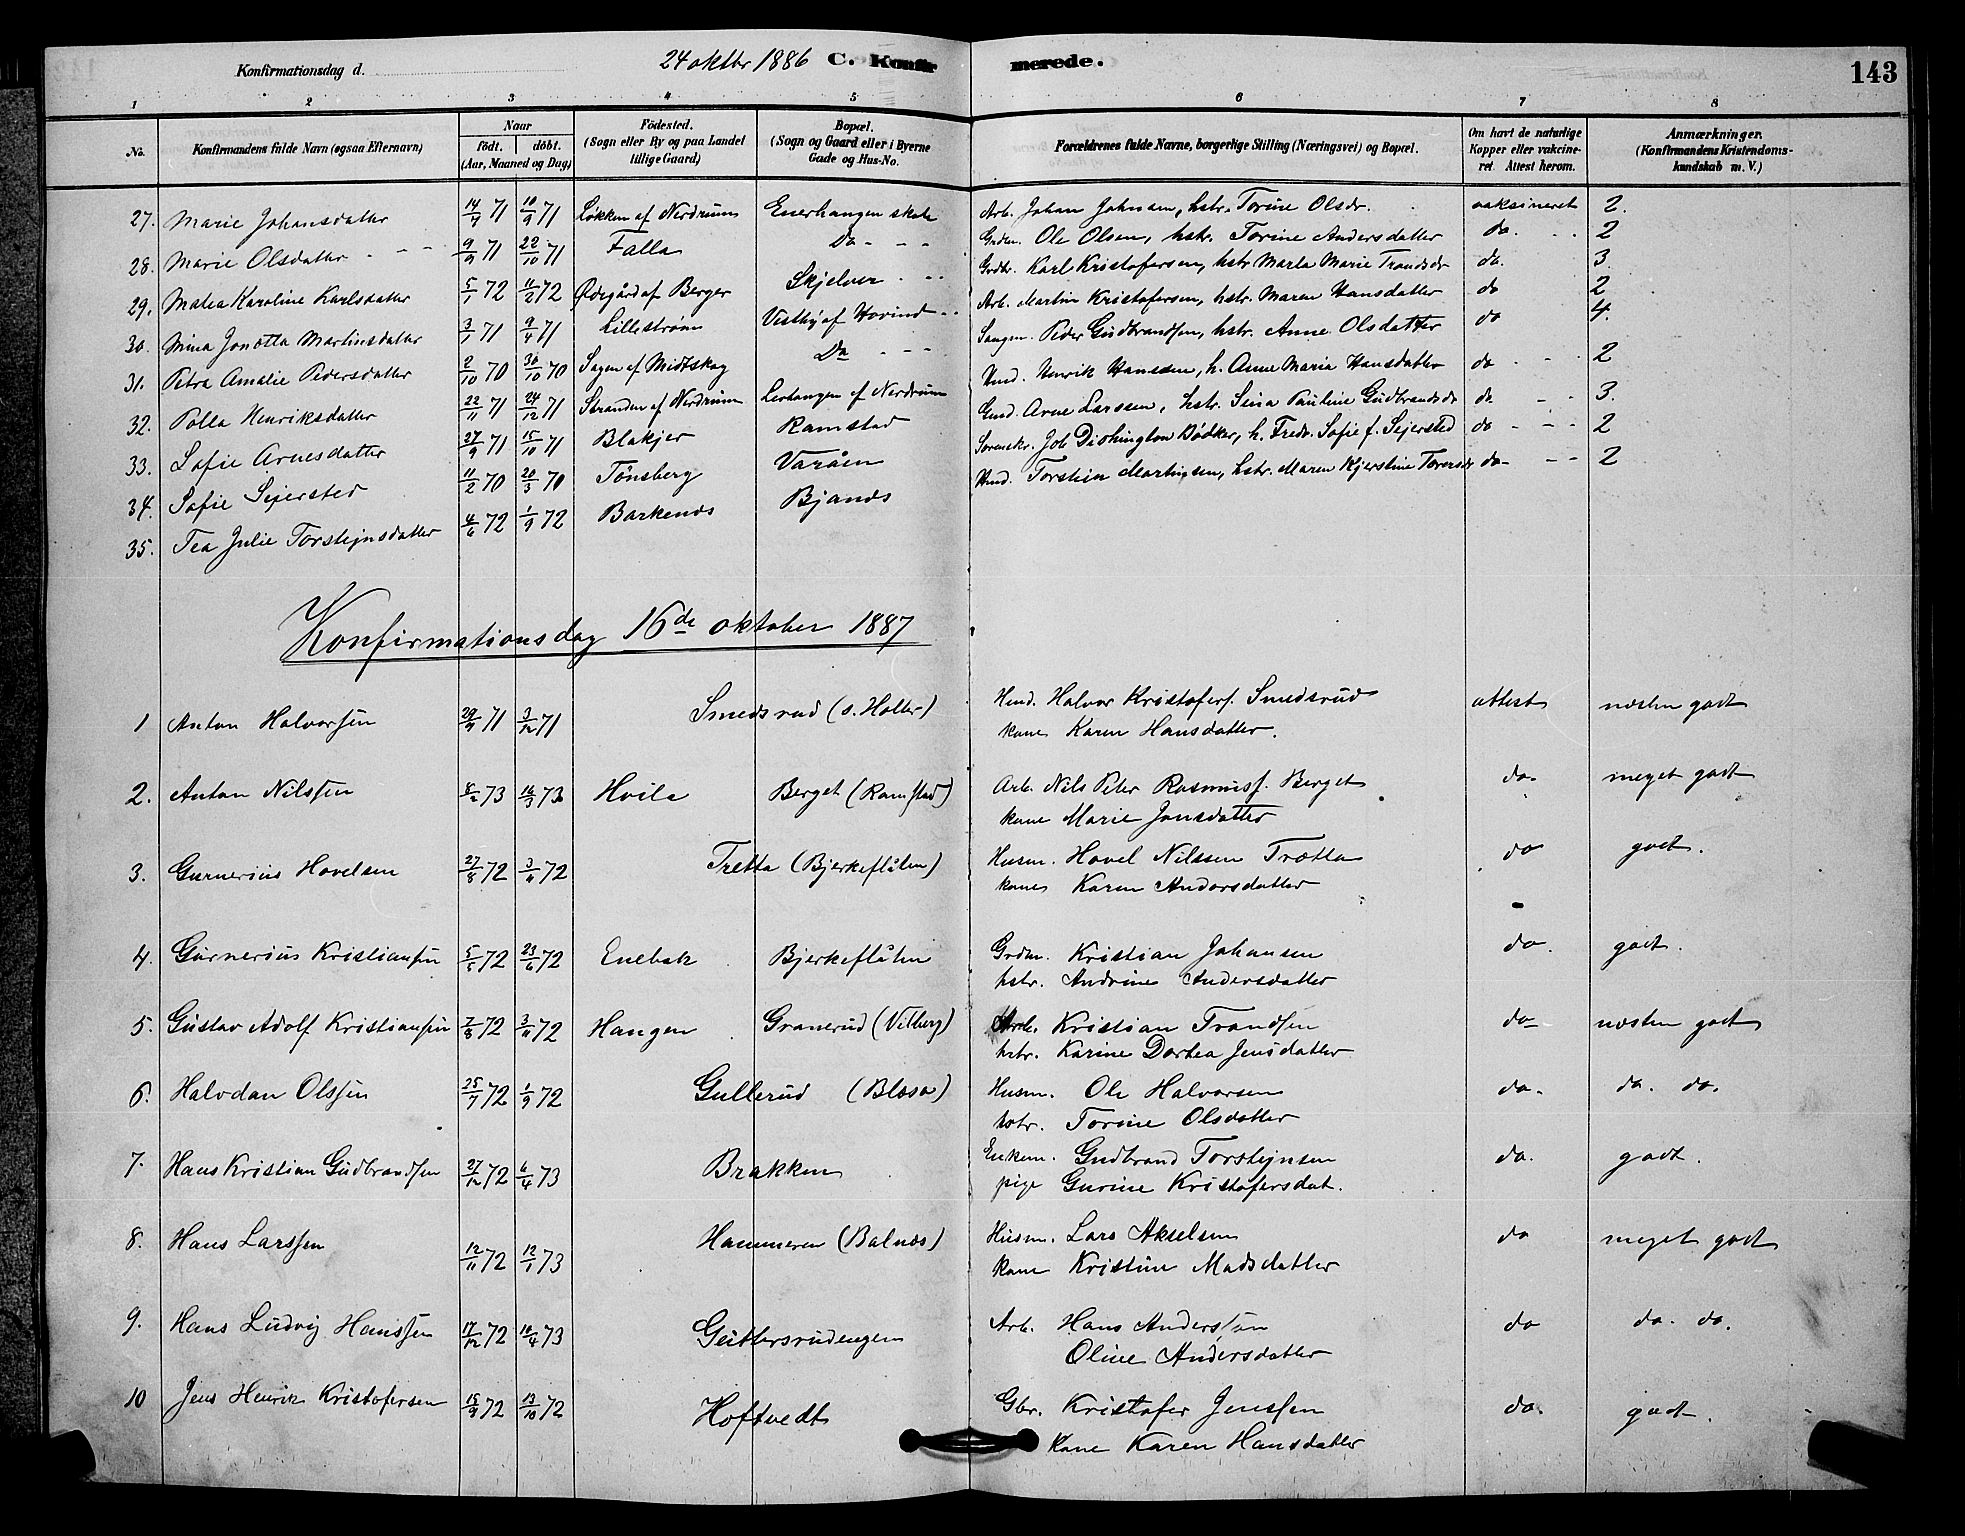 Konfirmationsdag d. 24 oktbr 1886 C. Konfirmerede. 143
1 2 3 4 5 6 7 8
No. Konfirmandens fulde Navn (ogsaa Efternavn) Naar født. døbt. (Aar, Maaned og Dag) Fødested. (Sogn eller By og paa Landet tillige Gaard) Bopæl. (Sogn og Gaard eller i Byerne Gade og Hus-No. Forældrenes fulde Navne, borgerlige Stilling (Næringsvei) og Bopæl. Om havt de naturlige Kopper eller vakcineret. Attest herom. Anmærkninger. (Konfirmandens Kristendomskundskab m. V.)
27. Marie Johansdatter 14/7 71 10/9 71 Løkken af Nerdrum Enerhaugen skole Arb. Johan Johnsen, hstr. Torine Olsdr. vaksineret 2.
28. Marie Olsdatter - - 9/9 71 22/10 71 Falla Do - - - Grdm. Ole Olsen, hstr. Torine Andersdatter do. 2
29. Matea Karoline Karlsdatter 5/1 72 11/2 72 Ødegård af Berger Skjelver - - Grdbr. Karl Kristofersen, hstr Marta Marie Trondsdr do. 3
30. Mina Jonetta Martinsdatter 3/1 71 9/4 71 Lillestrøm Vestby af Hovind - - Arb. Martin Kristofersen, hstr. Maren Hansdatter do 2
31. Petra Amalie Pedersdatter 2/10 70 30/10 70 Sagen af Midtskog Do - - - Saugm. Peder Gudbrandsen, hstr. Anne Olsdatter do 4.
32. Polla Henriksdatter 22/11 71 24/12 71 Stranden af Nerdrum Lerhaugen af Nerdrum Hmd. Henrik Hanssen, h. Anne Maria Hansdatter do - - - 2
33. Sofie Arnesdatter 27/9 71 15/10 71 Blakjer Ramstad Gmd. Arne Larssen, hstr. Sina Pauline Gudbrandsdr do - - 3.
34. Sofie Sejersted 11/2 70 20/3 70 Tønsberg Varåen Job Bødker, h. Fredr. Sofie f. Sejersted do - - - 2
35. Tea Julie Torstejnsdatter 4/6 72 1/9 72 Barkenes Bjanes Hmd. Torstein Martinsen, hstr. Maren Kjerstine Toversdr do - - - 2
Konfirmationsdag 16de oktober 1887
1 Anton Halvorsen 29/9 71 3/12 71 Smedsrud (s. Holter) Hmd. Halvor Kristofers. Smedsrud attest næsten godt
kone Karen Hansdatter.
2. Anton Nilssen 8/2 73 16/3 73 Hvila Berget (Ramstad) Arb. Nils Peter Rasmuss. Berget do. meget godt
kone Marie Jonsdatter
3. Gunnerius Hovelsen 27/8 72 3/11 72 Tretta (Bjerkeflåten) Husm. Hovel Nilssen Trætta do godt.
kone Karen Andorsdatter
4. Gunnerius Kristiansen 5/5 72 23/6 72 Enebak Bjerkeflåten Grdm. Kristian Johansen do. godt.
hstr. Andrine Andersdatter
5. Gustav Adolf Kristiansen 7/8 72 3/11 72 Haugen Granerud (Vilberg) Arb. Kristian Trondsen do næsten godt
hstr. Karine Dortea Jensdatter
6. Halvdan Olssen 25/7 72 1/9 72 Gullerud (Blæsa) Husm. Ole Halvorsen do. do. do.
hstr. Torine Olsdatter
7. Hans Kristian Gudbrandsen 27/12 72 6/4 73 Brakken Enkem. Gudbrand Torstejnsen do. godt.
pige Gurine Kristofersdat.
8. Hans Larssen 12/11 72 12/1 73 Hammeren (Balnes) Husm. Lars Akselsen do meget godt
kone Kristine Madsdatter
9. Hans Ludvig Hanssen 17/12 72 10/4 73 Guttersrudengen Arb. Hans Anderssen do do. do.
Oline Andersdatter
10 Jens Henrik Kristofersen 15/9 72 13/10 72 Hoftvedt Gbr. Kristofer Jenssen do. godt.
Kone Karen Hansdatter